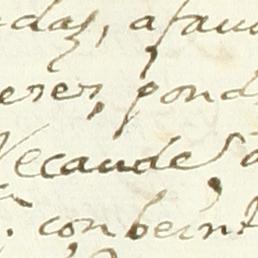 das, afau
eres, pond
Recaudes
conbeint